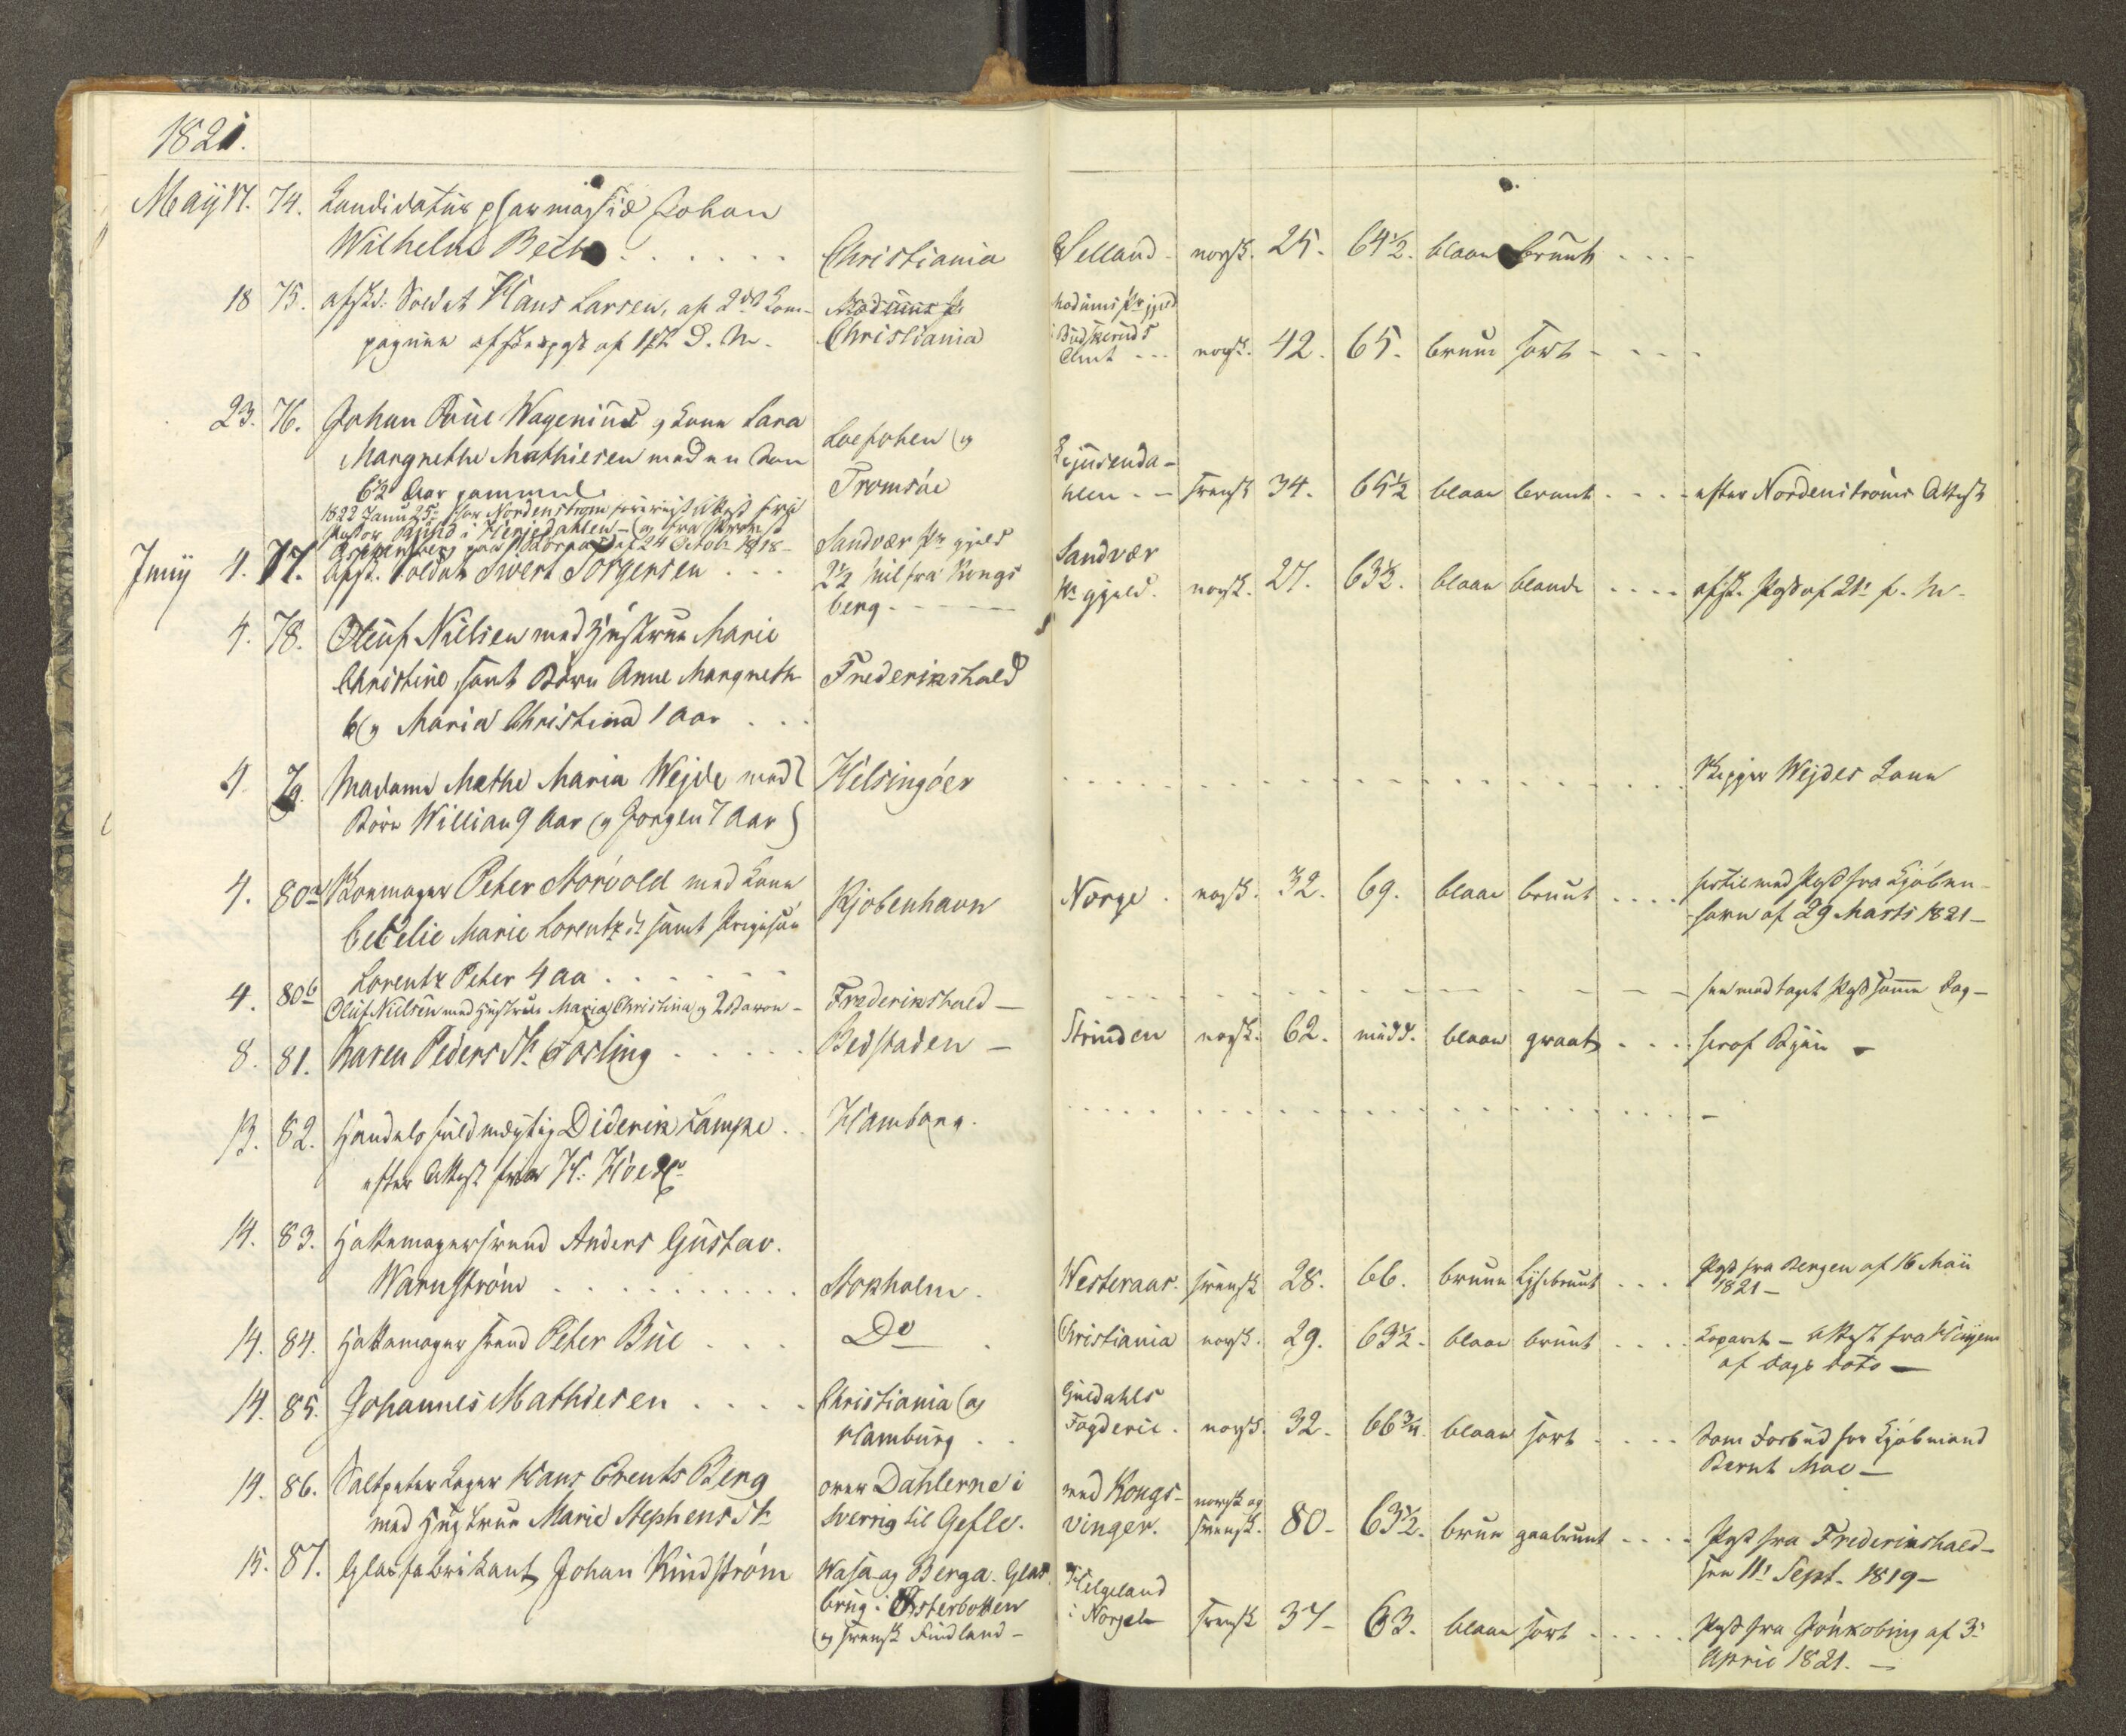 1821.
Maÿ 17. 74. Candidatus pharmasiæ Johan
Wilhelm Bech . . . . . . Christiania Selland norsk. 25. 64½. blaae brunt - - -
18 75. afskd: Soldat Hans Larsen, af 2det Com-
pagnie Christiania Modums Pr gjeld
i Buskeruds
Amt - - - norsk. 42. 65. brune sort - - - -
23. 76. Johan Poüel Wagenius og Kone Sara
Margrethe Mathiesen med en Søn
6½ Aar gammel. Loefohen og
Tromsöe svensk 34. 65½ blaae brunt - - - efter Nordenströms Attest
1822 Janu 25
Pastor i Herjedahlen - og fra
af 24 Octob. 1818 -
Junÿ 4. 77. Afsk. Soldat Sivert Jörgensen . . . Sandvær Pr gjeld
2½ Mil fra Kongs
berg - - - Sandvær
Pr gjeld. norsk. 27. 63½. blaae blonde - - - - afsk. Pass af 21 f. M.
4. 78. Oluf Nielsen med Hustrue Marie
Christine, samt Börn Anne Margreth
6 og Maria Christina 1 Aar . . . Frederikshald
4. 79. Madame Mathe Maria Wejde med
Börn Willian 9 Aar og Jorgen 7 Aar Helsingöer - - - Skipper Wejdes Kone
4. 80a Skomager Peter Storvold med Kone
Cecelie Marie Lorentz Dr samt Pigesøn
Lorentz Peter 4 Aa . . . . . . Kjöbenhavn Norge . norsk. 32. 69. blaae brunt . . . . hertil med Pass fra Kjöben-
havn af 29 Marts 1821 -
4. 80b Oluf Nielsen med Hustrue Maria Christina og 2 Børn - Frederikshald - - - - har modtaget Pass samme Dag -
8. 81. Karen Peders Dr Forling - - - - Bedstaden - Strinden norsk. 62. midd. blaae graat - - - her af Byen -
13. 82. Handels fuldmægtig Diderik Lampe . . Hamborg. - - -
efter Attest fra H. Hoe & Co
14. 83. Hattemagersvend Anders Gustav.
Warnström . . . . . . . . . Stokholm. Westeraas. svensk 28. 66. brune Lysebrunt . . . Pass fra Bergen af 16 Maii
1821 -
14. 84. Hattemager svend Peter Bue . . . Do Christiania norsk. 29. 63½. blaae brunt . . . . - Attest fra
af Dags Dato -
14. 85. Johannes Mathiesen . . . . Christiania og
Hamburg . . Guldahls
Fogderie. norsk. 32. 66¾. blaae sort - - - - Som Forbud for Kjöbmand
Bernt Moe -
14. 86. Saltpeter Koger Hans Brents Berg
med Hustrue Marie Stephens Dr over Dahlerne i
Sverrig til Gefle. ved Kongs-
vinger. norsk og
svensk. 80 - 63½. brun graabrunt - - - - Pass fra Frederikshald -
den 11 Sept. 1819 -
15. 87. Glasfabrikant Johan Rindström Wasa og Berga Glas
brug i Österbotten
og svensk Findland - Helgeland
i Norge svensk 37 - 63. blaae sort - - - - Pass fra Jönkobing af 3
April 1821. -